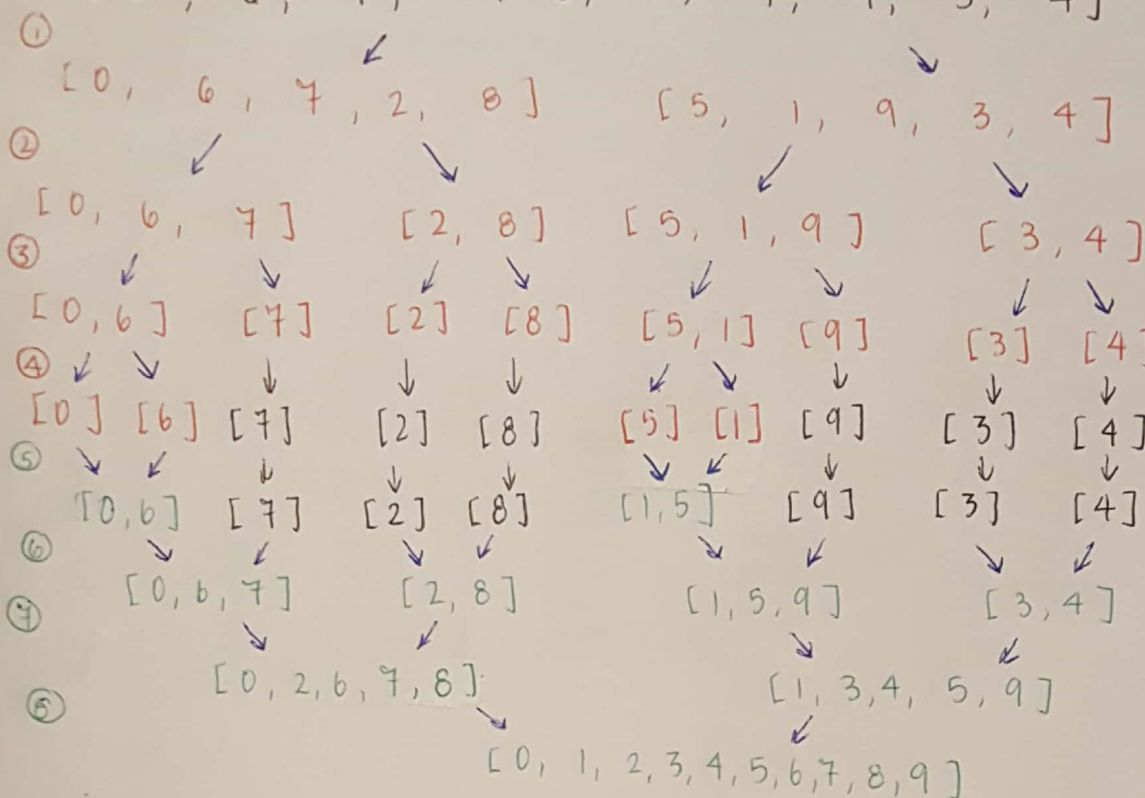 ①
[0, 6, 7, 2, 8] [5, 1, 9, 3, 4]
②
[0, 6, 7] [2, 8] [5, 1, 9] [3, 4]
③
[0, 6] [7] [2] [8] [5, 1] [9] [3] [4]
④
[0] [6] [7] [2] [8] [5] [1] [9] [3] [4]
⑤
[0, 6] [7] [2] [8] [1, 5] [9] [3] [4]
⑥
[0, 6, 7] [2, 8] [1, 5, 9] [3, 4]
⑦
[0, 2, 6, 7, 8] [1, 3, 4, 5, 9]
⑧
[0, 1, 2, 3, 4, 5, 6, 7, 8, 9]